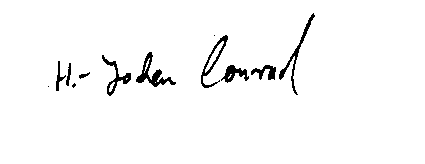 H.- Jochen Conrad